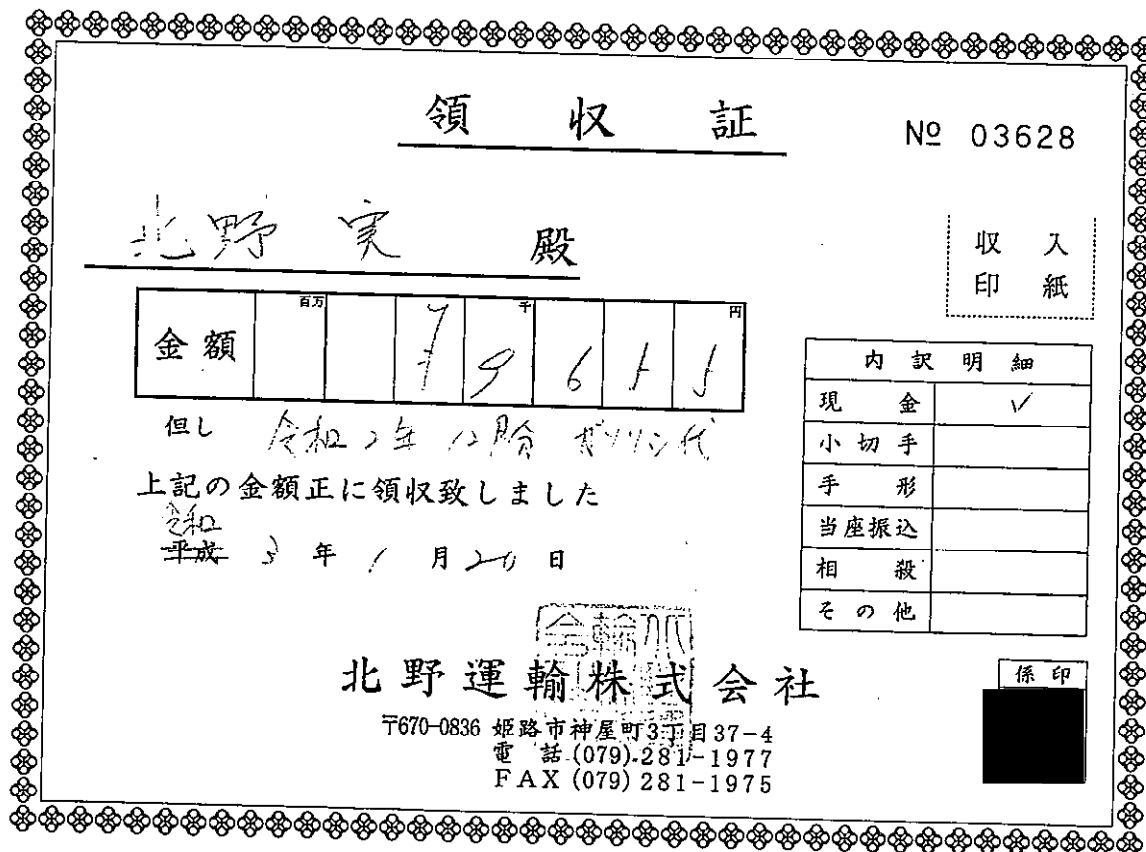 領収証
№ 03628
北野 実 殿
収入
印紙
金額 百万 千 円 9 6
但し 令和2年12月分 ガソリン代
上記の金額正に領収致しました
令和
平成 3 年 1 月 20 日
内訳明細
現金 ✓
小切手
手形
当座振込
相殺
その他
北野運輸株式会社
〒670-0836 姫路市神屋町3丁目37-4
電話 (079) 281-1977
FAX (079) 281-1975
係印